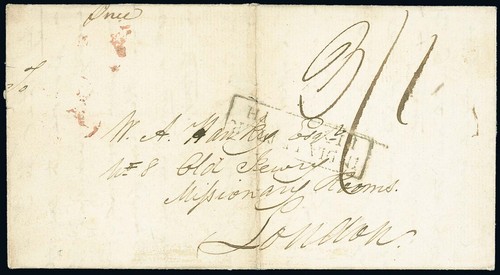 Once
3/1
To
W. A. Hankey Esqr.
No 8 Old Jewry
Missionary Rooms.
London.